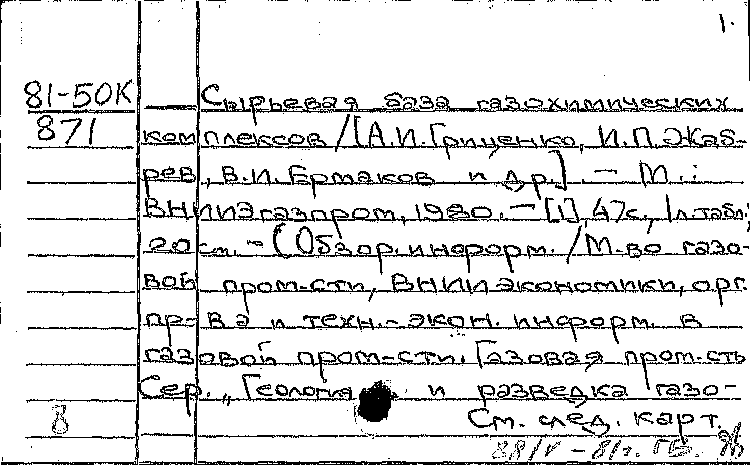 1.
81-50К
871
Сырьевая база газохимических
комплексов /[А.И.Гриценко, И.П.Жаб-
рев, В.И.Ермаков и др.]. — М.:
ВНИИЭгазпром, 1980. — [1], 47с., 1л.табл;
20 см. — (Обзор. информ. /М-во газо-
вой пром-сти, ВНИИ экономики, орг.
пр-ва и техн.-экон. информ. в
газовой пром-сти. Газовая пром-сть
Сер. „Геология и разведка газо-
См. след. карт.
8
88/V - 81г. ГБ.